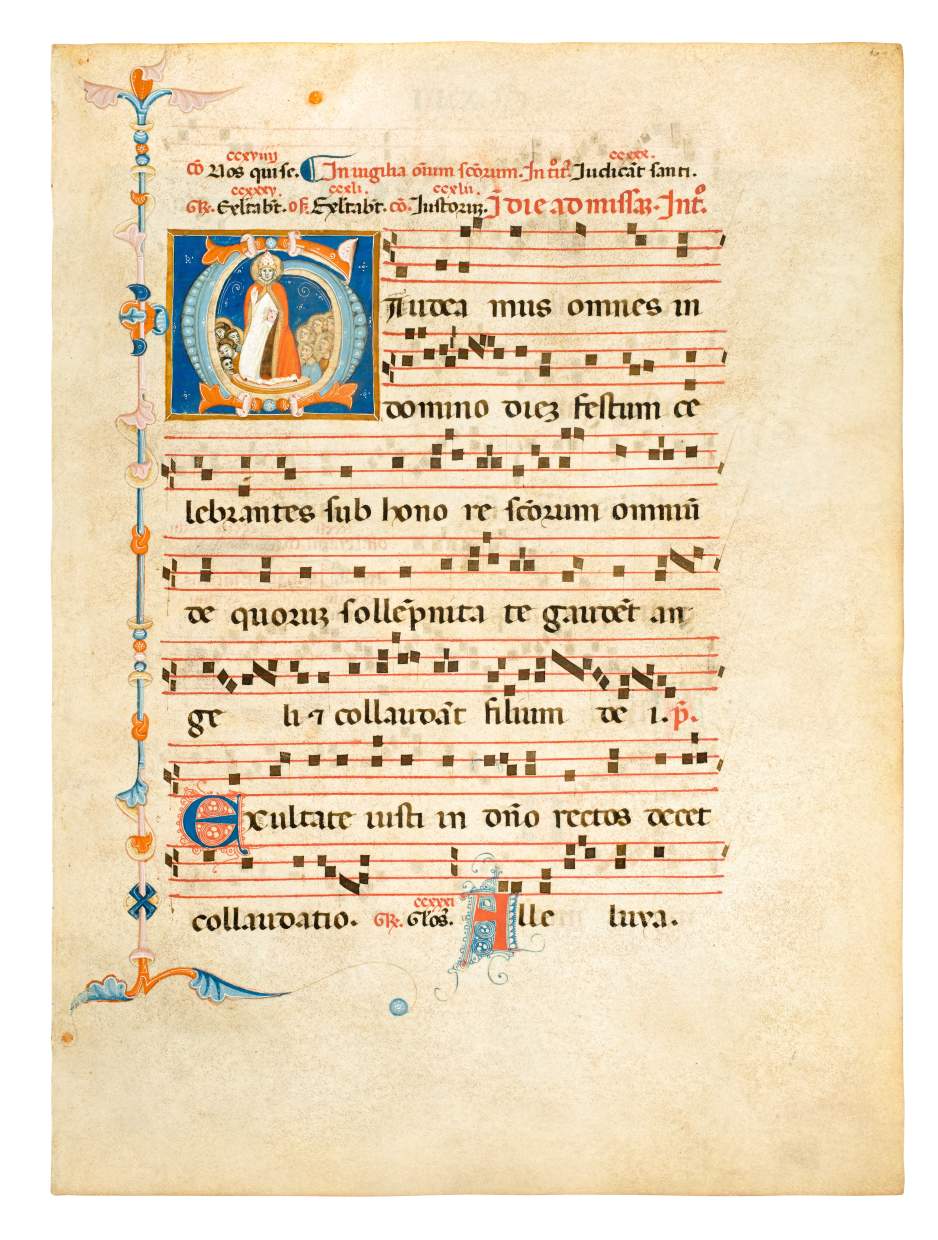 ccxviiij ccxxx.
Cō Uos qui sc. In uigilia oīum scōrum. Intīt. Iudicāt santi.
ccxxxv ccxli. ccxlii.
GR. Exltabt. of. Exltabt. cō. Iustoruʒ. I die ad missaʒ. Int.
Gaudea mus omnes in
domino dieʒ festum ce
lebrantes sub hono re scōrum omniū
de quoruʒ sollēpnita te gaudēt an
ge li ⁊ collaudāt filium de i. p̄.
Exultate iusti in dn̄o rectos decet
ccxxxi
collaudatio. GR. Glōs. Alle luya.